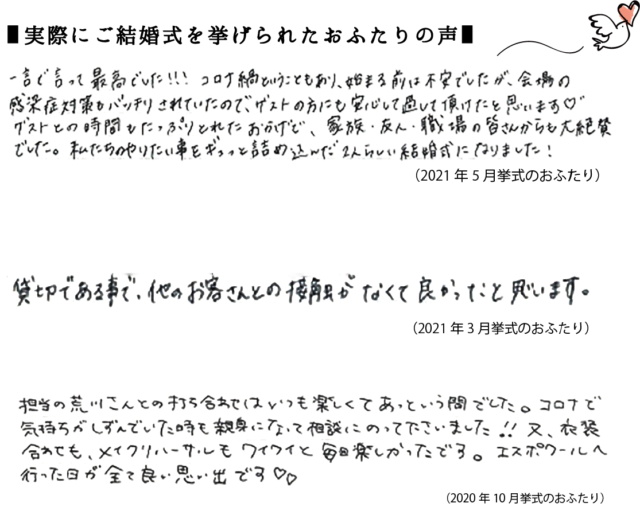 ▮実際にご結婚式を挙げられたおふたりの声▮
一言で言って最高でした!!! コロナ禍ということもあり、始まる前は不安でしたが、会場の
感染症対策もバッチリされていたので、ゲストの方にも安心して過して頂けたと思います♡
ゲストとの時間もたっぷりとれたおかげで、家族・友人・職場の皆さんからも大絶賛
でした。私たちのやりたい事をギュっと詰め込んだ2人らしい結婚式になりました!
（2021 年 5 月挙式のおふたり）
貸切である事で、他のお客さんとの接触がなくて良かったと思います。
（2021 年 3 月挙式のおふたり）
担当の荒川さんとの打ち合わせはいつも楽しくてあっという間でした。コロナで
気持ちがしずんでいた時も親身になって相談にのって下さいました!! 又、衣装
合わせも、メイクリハーサルもワイワイと毎日楽しかったです。エスポワールへ
行った日が全て良い思い出です♡♡
（2020 年 10 月挙式のおふたり）